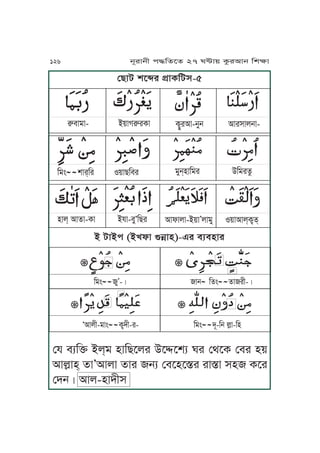 ১২৬ নূরানী পদ্ধতিতে ২৭ ঘণ্টায় কুরআন শিক্ষা
ছোট শব্দের প্রাকটিস-৫
اَرْسَلْنَا قُرْاٰنٌ يَغْرُرْكَ رُبَمَا
রুবামা- ইয়াগরুরকা কুরআ-নুন আরসালনা-
اُمِرْتُ مُنْهَمِرٍ وَاصْبِرْ مِنْ شَرِّ
মিং--শার্‌রি ওয়াছবির মুন্‌হামির উমিরতু
وَالْتَقَتْ اَفَلَا يَعْلَمُ اِذَا بُعْثِرَ هَلْ اَتٰكَ
হাল্‌ আতা-কা ইযা-বু'ছির আফালা-ইয়া'লামু ওয়াআল্‌ক্বত্‌
ই টাইপ (ইখফা গুন্নাহ)-এর ব্যবহার
جَنّٰتٍ تَجْرِىْ مِنْ جُوْعٍ
মিং--জু'-। জান- তিং--তাজরী-।
مِنْ دُوْنِ اللّٰهِ عَلِيْمًا قَدِيْرًا
'আলী-মাং--ক্বদী-র- মিং--দূ-নি ল্লা-হি
যে ব্যক্তি ইল্‌ম হাছিলের উদ্দেশ্যে ঘর থেকে বের হয়
আল্লাহ্‌ তা'আলা তার জন্য বেহেস্তের রাস্তা সহজ করে
দেন। আল-হাদীস